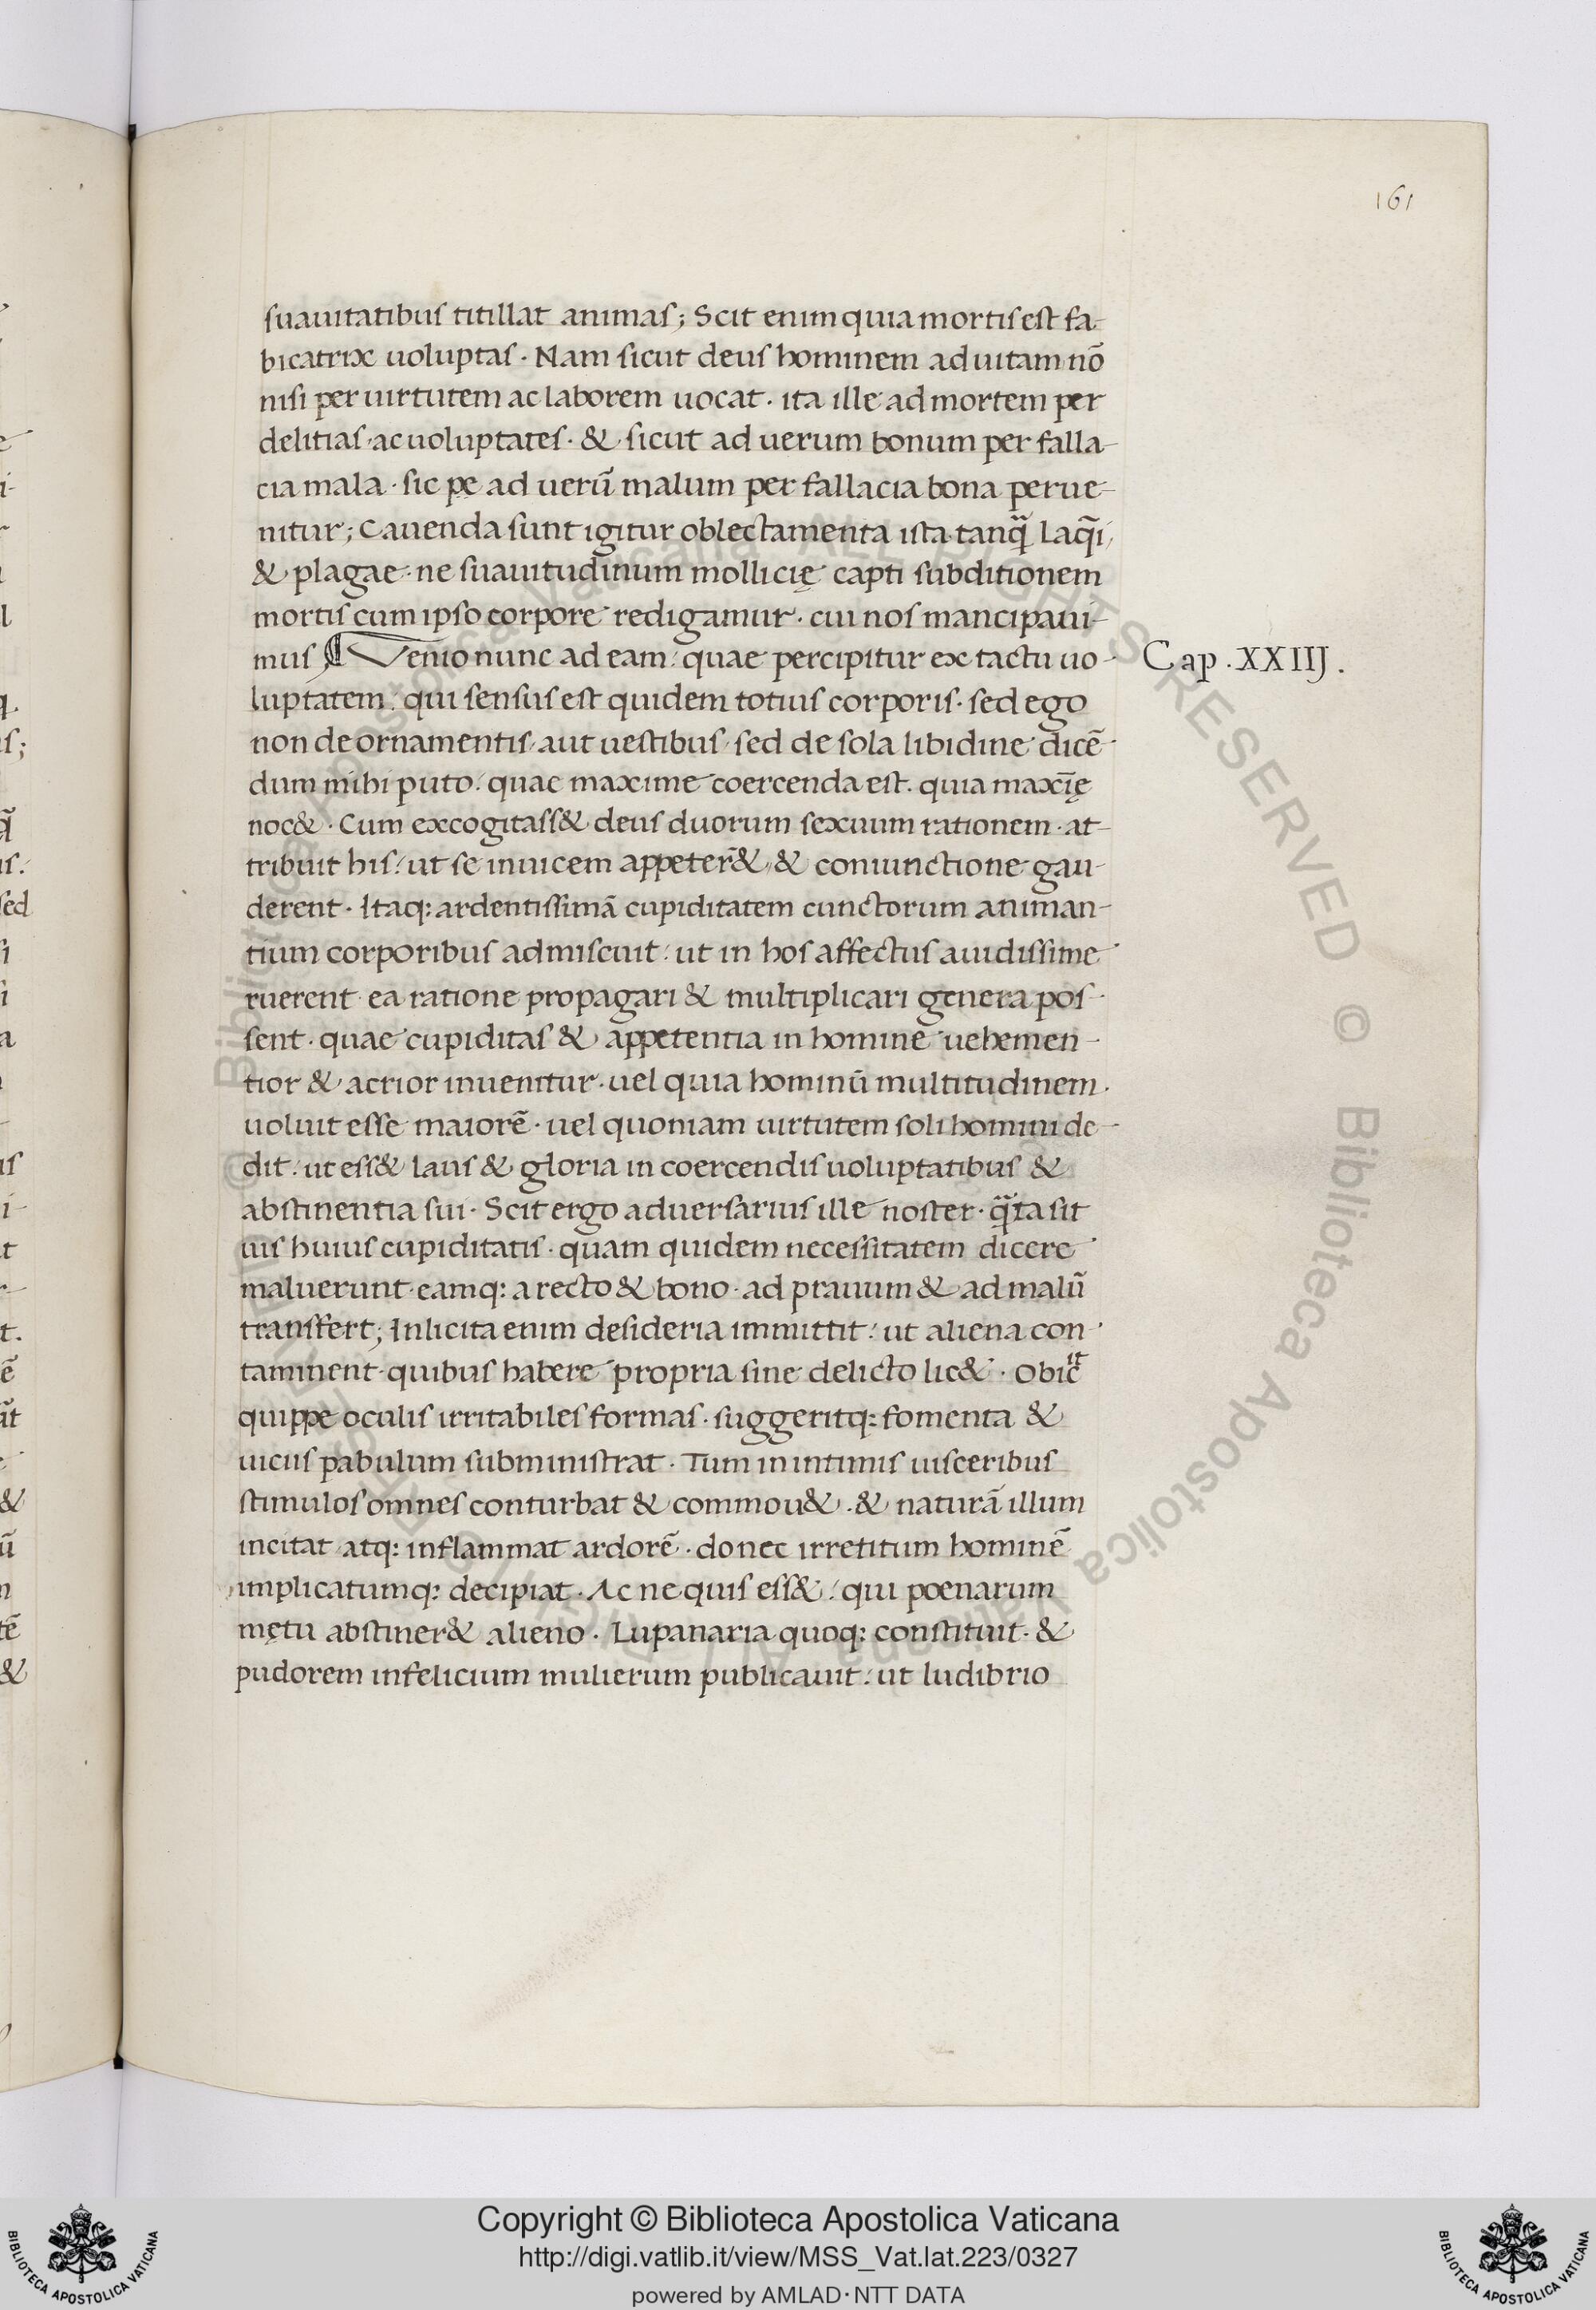 161
suauitatibus titillat animas; Scit enim quia mortis est fa-
bicatrix uoluptas · Nam sicut deus hominem ad uitam nō
nisi per uirtutem ac laborem uocat · ita ille ad mortem per
delitias · ac uoluptates · & sicut ad uerum bonum per falla-
cia mala · sic pe ad uerū malum per fallacia bona perue-
nitur; Cauenda sunt igitur oblectamenta ista tanq̄ laq̄i,
& plagae · ne suauitudinum mollicię capti subditionem
mortis cum ipso corpore redigamur · cui nos mancipaui-
mus ¶ Venio nunc ad eam: quae percipitur ex tactu uo-
Cap . XXIIJ .
luptatem: qui sensus est quidem totius corporis · sed ego
non de ornamentis · aut uestibus · sed de sola libidine dicē-
dum mihi puto: quae maxime coercenda est. quia maxīę
noc& · Cum excogitass& deus duorum sexuum rationem · at-
tribuit his: ut se inuicem appeter̄&, & coniunctione gau-
derent · Itaq: ardentissimā cupiditatem cunctorum animan-
tium corporibus admiscuit: ut in hos affectus auidissime
ruerent · ea ratione propagari & multiplicari genera pos-
sent · quae cupiditas & appetentia in homine uehemen-
tior & acrior inuenitur · uel quia hominū multitudinem
uoluit esse maiorē · uel quoniam uirtutem soli homini de-
dit: ut ess& laus & gloria in coercendis uoluptatibus &
abstinentia sui · Scit ergo aduersarius ille noster · q̄ta sit
uis huius cupiditatis · quam quidem necessitatem dicere
maluerunt · eamq: a recto & bono · ad prauum & ad malū
transfert; Inlicita enim desideria immittit: ut aliena con-
taminent · quibus habere propria sine delicto lic& · Obicit
quippe oculis irritabiles formas · suggeritq: fomenta &
uiciis pabulum subministrat · Tum in intimis uisceribus
stimulos omnes conturbat & commou& · & naturā illum
incitat atq: inflammat ardorē · donec irretitum hominē
implicatumq: decipiat · Ac ne quis ess&: qui poenarum
mętu abstiner& alieno · Lupanaria quoq: constituit · &
pudorem infelicium mulierum publicauit: ut ludibrio
Copyright © Biblioteca Apostolica Vaticana
http://digi.vatlib.it/view/MSS_Vat.lat.223/0327
powered by AMLAD · NTT DATA
BIBLIOTECA APOSTOLICA VATICANA
BIBLIOTECA APOSTOLICA VATICANA